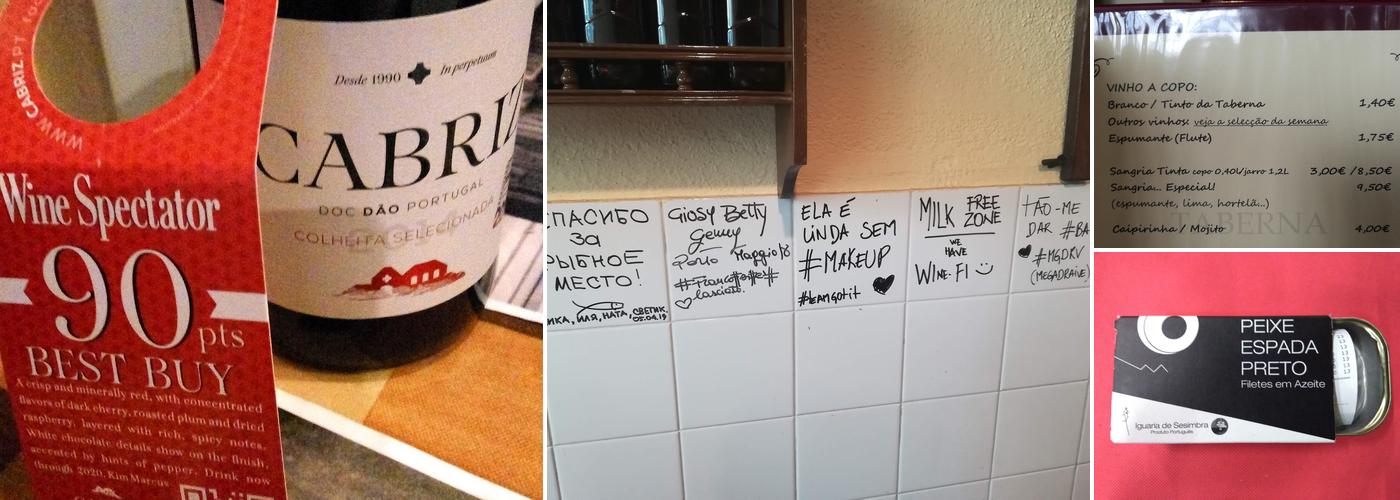 WWW.CABRIZ.PT
Wine Spectator
90
pts
BEST BUY
A crisp and minerally red, with concentrated
flavors of dark cherry, roasted plum and dried
raspberry, layered with rich, spicy notes.
White chocolate details show on the finish,
accented by hints of pepper. Drink now
through 2020. Kim Marcus
Desde 1990 In perpetuum
CABRIZ
DOC DÃO PORTUGAL
COLHEITA SELECIONADA
СПАСИБО
За
РЫБНОЕ
МЕСТО!
ИКА, ИЛЯ, НАТА, СВЕТИК.
05.04.19
Giosy Betty
Genny
Porto Maggio 18
ELA É
LINDA SEM
#MAKEUP
MILK FREE
ZONE
WE
HAVE
WINE-FI
TÃO-ME
DAR #BA
#MGDRV
(MEGADRAIVE)
VINHO A COPO:
Branco / Tinto da Taberna 1,40€
Outros vinhos: veja a selecção da semana
Espumante (Flute) 1,75€
Sangria Tinta copo 0,40l/jarro 1,2L 3,00€ /8,50€
Sangria... Especial! 9,50€
(espumante, lima, hortelã...)
TABERNA
Caipirinha / Mojito 4,00€
PEIXE
ESPADA
PRETO
Filetes em Azeite
Iguaria de Sesimbra
Produto Português